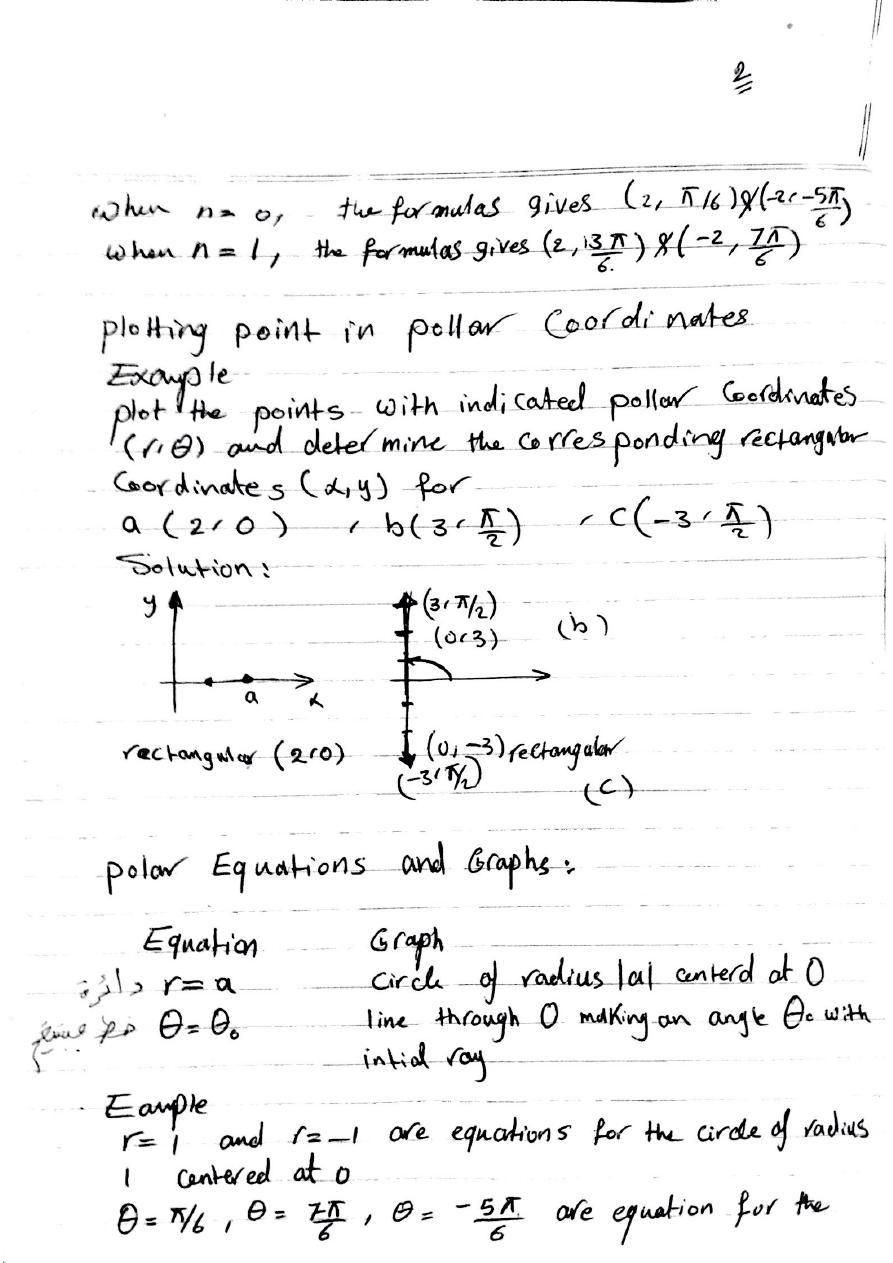 2
when n = 0, the formulas gives (2, π/6) & (-2, -5π/6)
when n = 1, the formulas gives (2, 13π/6) & (-2, 7π/6)
plotting point in pollar Coordinates
Example
plot the points with indicated pollar Coordinates
(r, θ) and determine the corresponding rectangular
Coordinates (x, y) for
a (2, 0) , b(3, π/2) , c(-3, π/2)
Solution:
y
a
x
rectangular (2, 0)
(3, π/2)
(0, 3)
(b)
(0, -3) rectangular
(-3, π/2)
(C)
polar Equations and Graphs:
Equation Graph
دائرة r = a circle of radius |a| centerd at O
خط مستقيم θ = θ₀ line through O making an angle θ₀ with
intial ray
Eample
r = 1 and r = -1 are equations for the circle of radius
1 centered at 0
θ = π/6, θ = 7π/6, θ = -5π/6 are equation for the